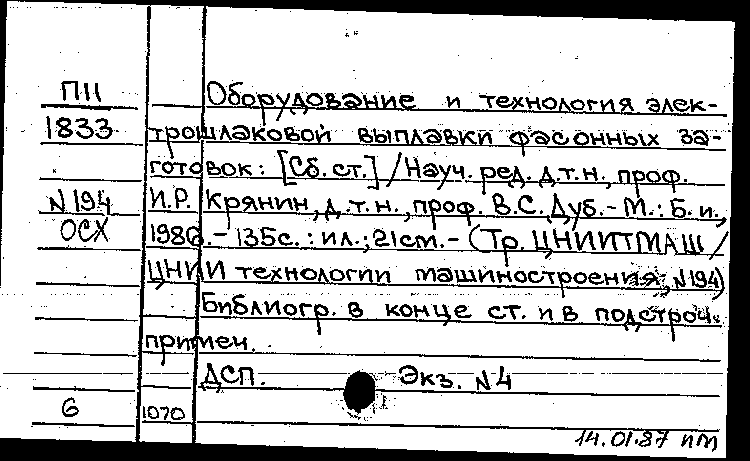 П11 Оборудование и технология элек-
1833 трошлаковой выплавки фасонных за-
готовок: [Сб. ст.] / Науч. ред. д.т.н., проф.
N194 И.Р. Крянин, д.т.н., проф. В.С. Дуб. - М.: Б. и.,
ОСХ 1986. - 135с.: ил.; 21см. - (Тр. ЦНИИТМАШ /
ЦНИИ технологии машиностроения; N194)
Библиогр. в конце ст. и в подстроч.
примеч.
ДСП. Экз. N4
6 1070
14.01.87 пм